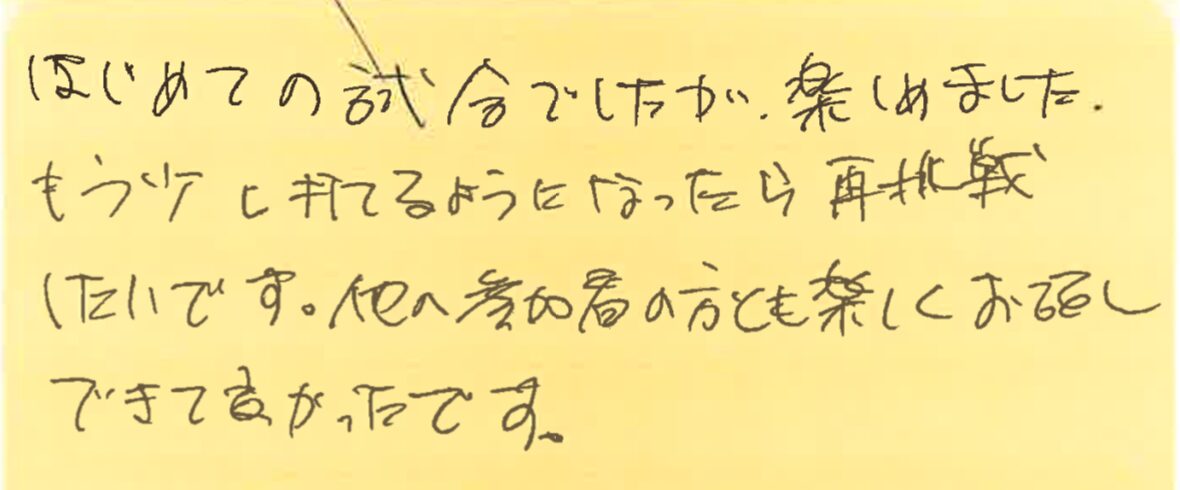 はじめての試合でしたが、楽しめました。
もう少し打てるようになったら再挑戦
したいです。他の参加者の方とも楽しくお話し
できて良かったです。